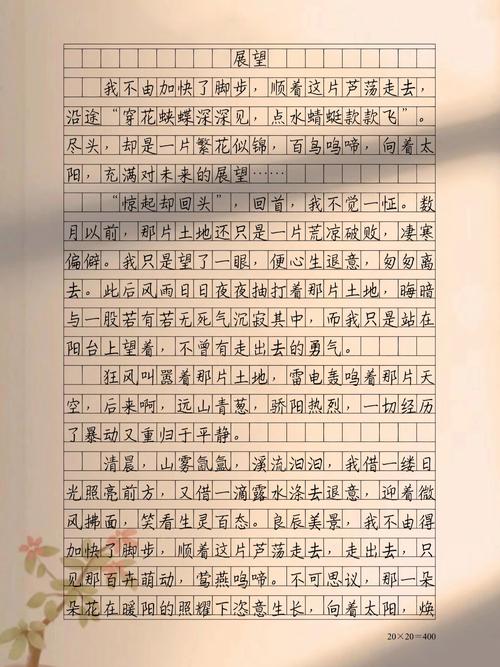 展望
我不由加快了脚步，顺着这片芦荡走去，
沿途“穿花蛱蝶深深见，点水蜻蜓款款飞”。
尽头，却是一片繁花似锦，百鸟呜啼，向着太
阳，充满对未来的展望……
“惊起却回头”，回首，我不觉一怔。数
月以前，那片土地还只是一片荒凉破败，凄寒
偏僻。我只是望了一眼，便心生退意，匆匆离
去。此后风雨日日夜夜抽打着那片土地，晦暗
与一股若有若无死气沉寂其中，而我只是站在
阳台上望着，不曾有走出去的勇气。
狂风叫嚣着那片土地，雷电轰鸣着那片天
空，后来啊，远山青葱，骄阳热烈，一切经历
了暴动又重归于平静。
清晨，山雾氤氲，溪流汩汩，我借一缕日
光照亮前方，又借一滴露水涤去退意，迎着微
风拂面，笑看生灵百态。良辰美景，我不由得
加快了脚步，顺着这片芦荡走去，走出去，只
见那百卉萌动，莺燕鸣啼。不可思议，那一朵
朵花在暖阳的照耀下恣意生长，向着太阳，焕
20×20=400